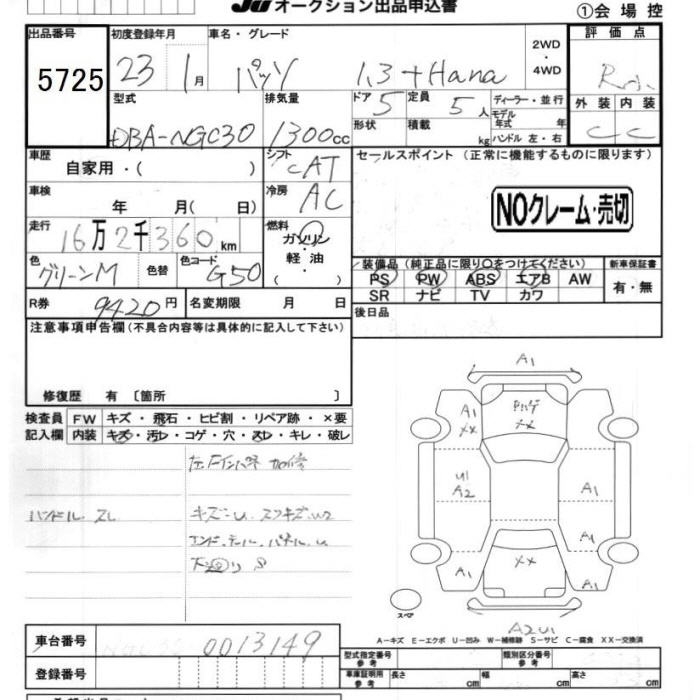 JU オークション出品申込書
①会 場 控
出品番号
5725
初度登録年月
23 1月
車名・グレード
パッソ 1.3 +Hana
2WD
・
4WD
評 価 点
R
外 装 内 装
C C
型式
DBA-NGC30
排気量
1300cc
ドア
5
定員
5人
ディーラー・並行
モデル年式 年
形状
積載 kg
ハンドル 左・右
車歴
自家用・( )
シフト
CAT
セールスポイント (正常に機能するものに限ります)
車検
年 月( 日)
冷房
AC
NOクレーム・売切
走行
16万2千360km
燃料
ガソリン
・
軽 油
色
グリーンM
色替
色コード
G50
装備品(純正品に限り○をつけてください)
新車保証書
PS PW ABS エアB AW
SR ナビ TV カワ
有・無
R券 9420円
名変期限 月 日
後日品
注意事項申告欄(不具合内容等は具体的に記入して下さい)
修復歴 有 〔箇所 〕
検査員
記入欄
FW キズ・飛石・ヒビ割・リペア跡・×要
内装 キズ・汚レ・コゲ・穴・スレ・キレ・破レ
ハンドル スレ
キズ=U
下廻り S
A1
A1
XX
XX
U1
A2
A1
A1
XX
A1
A1
スペア
A2 U1
A-キズ E-エクボ U-凹み W-補修跡 S-サビ C-腐食 XX-交換済
車台番号
0013149
登録番号
型式指定番号
参 考
類別区分番号
参 考
車庫証明用
参 考
長さ cm
幅 cm
高さ cm